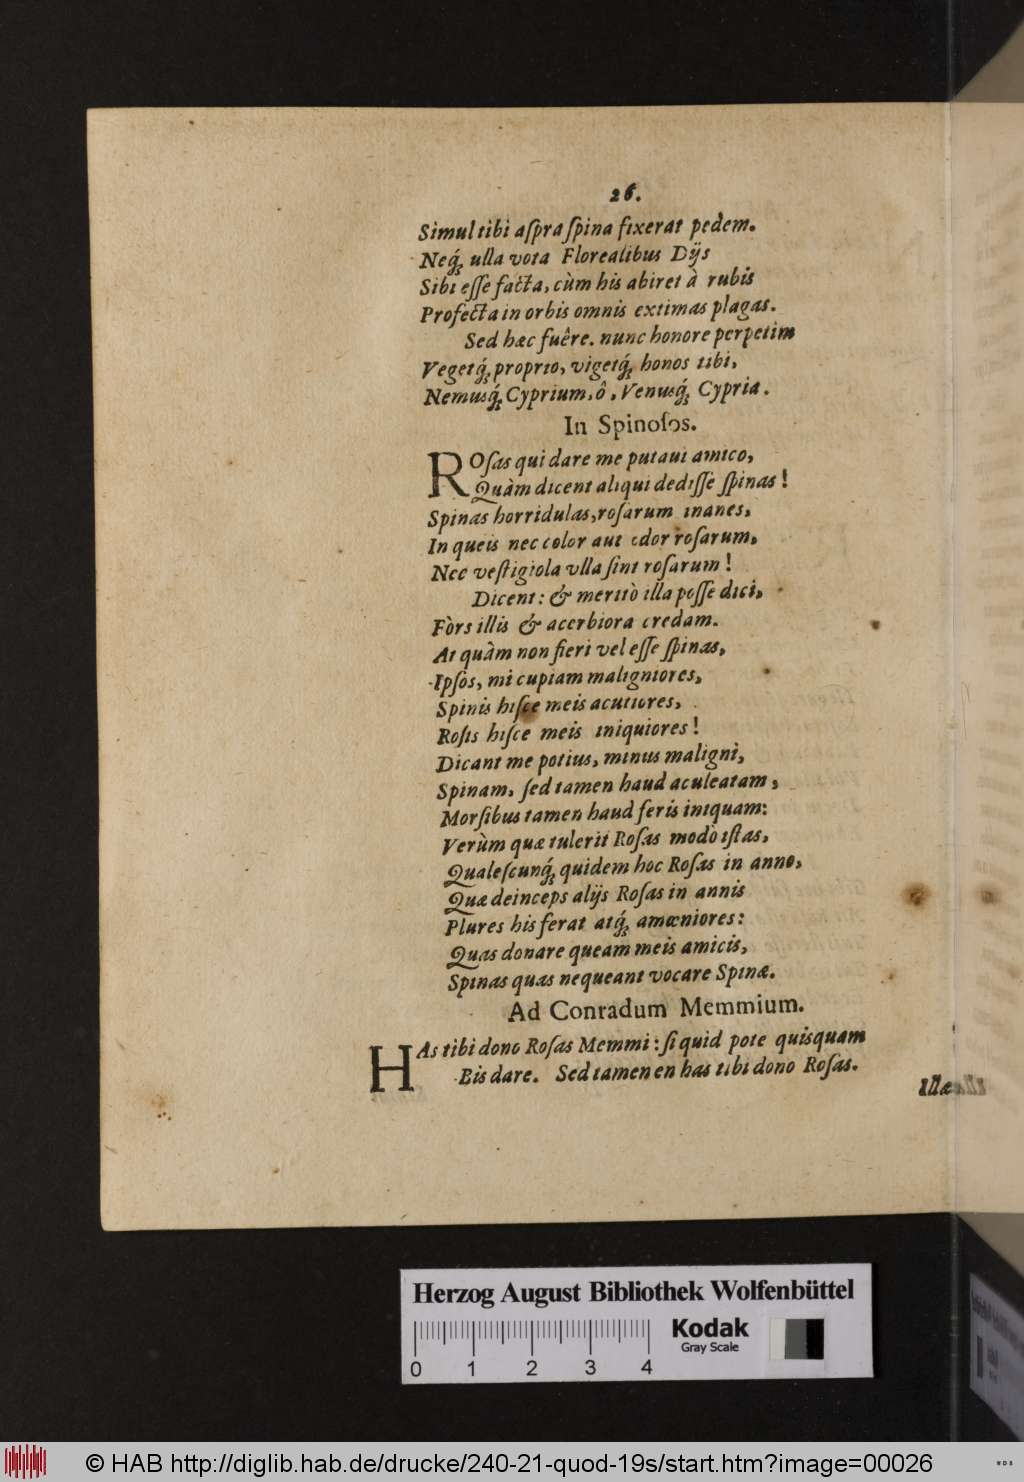 26.
Simul tibi aſpra ſpina fixerat pedem.
Neq́; ulla vota Florealibus Dijs
Sibi eſſe facta, cùm his abiret à rubis
Profecta in orbis omnis extimas plagas.
Sed hæc fuêre. nunc honore perpetim
Vegetq́; proprio, vigetq́; honos tibi,
Nemusq́; Cyprium, ô, Venusq́; Cypria.
In Spinoſos.
ROſas qui dare me putavi amico,
Quàm dicent aliqui dediſſe ſpinas!
Spinas horridulas, roſarum inanes,
In queis nec color aut odor roſarum,
Nec veſtigiola vlla ſint roſarum!
Dicent: & meritò illa poſſe dici,
Fòrs illis & acerbiora credam.
At quàm non fieri vel eſſe ſpinas,
Ipſos, mi cupiam maligniores,
Spinis hiſce meis acutiores,
Roſis hiſce meis iniquiores!
Dicant me potius, minus malignì,
Spinam, ſed tamen haud aculeatam,
Morſibus tamen haud feris iniquam:
Verùm quæ tulerit Roſas modò iſtas,
Qualeſcunq́; quidem hoc Roſas in anno,
Quæ deinceps alijs Roſas in annis
Plures his ferat atq́; amœniores:
Quas donare queam meis amicis,
Spinas quas nequeant vocare Spinæ.
Ad Conradum Memmium.
HAs tibi dono Roſas Memmi: ſi quid pote quisquam
Bis dare. Sed tamen en has tibi dono Roſas.
Herzog August Bibliothek Wolfenbüttel
Kodak
Gray Scale
0 1 2 3 4
© HAB http://diglib.hab.de/drucke/240-21-quod-19s/start.htm?image=00026